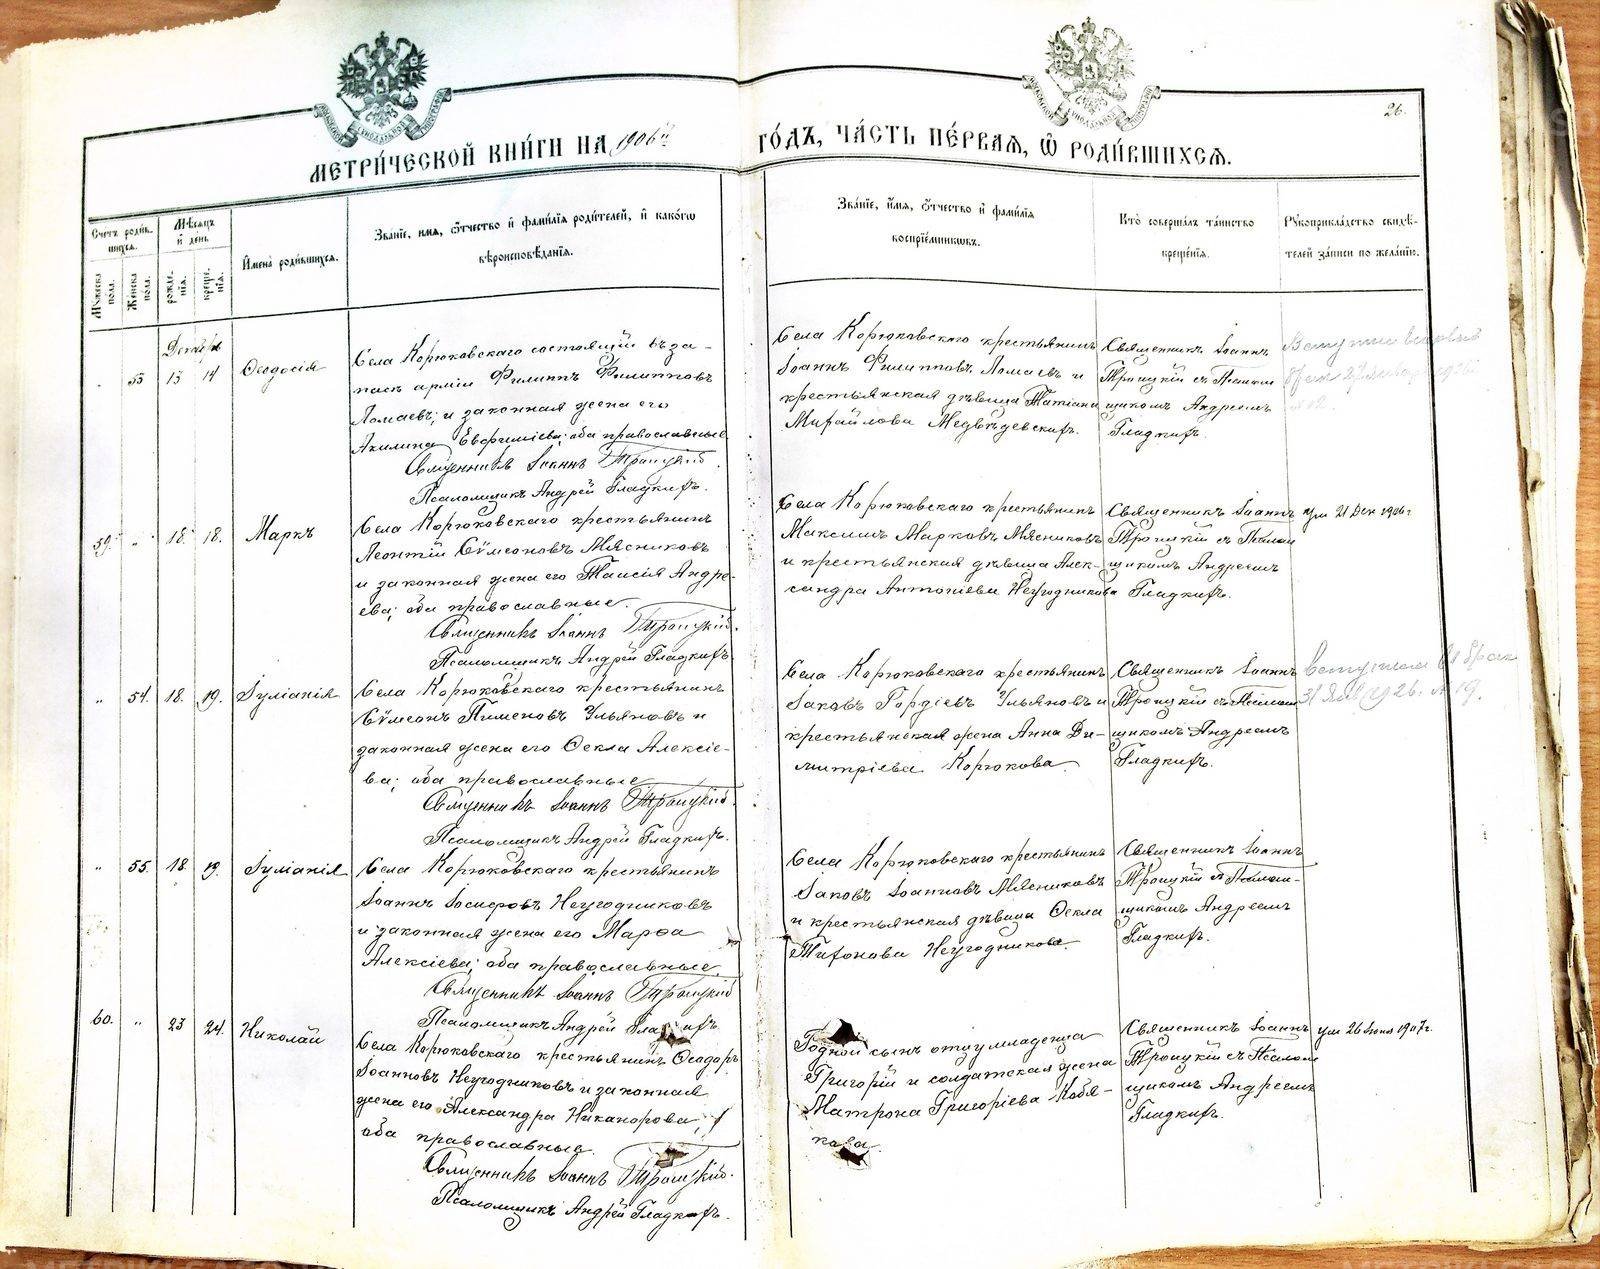 26.
МЕТРИ́ЧЕСКОЙ КНИ́ГИ НА 1906й ГО́ДЪ, ЧА́СТЬ ПЕ́РВАЯ, Ѽ РОДИ́ВШИХСѦ.
Счетъ роди́в-
шихсѧ.
Мꙋжеска пола.
Же́нска пола.
Мѣ́сѧцъ и҆ де́нь.
рожде́-
нїѧ.
креще́-
нїѧ.
И҆мена̀ роди́вшихсѧ.
Зва́нїе, и҆мѧ, ѻ҆́тчество и҆ фами́лїѧ роди́телей, и҆ како́гѡ
вѣроисповѣ́данїѧ.
Зва́нїе, и҆́мѧ, ѻ҆́тчество и҆ фами́лїѧ
воспрїе́мникѡвъ.
Кто̀ соверша́лъ та́инство
креще́нїѧ.
Рꙋкоприкла́дство свидѣ́-
телей за́писи по жела́нїю.
Декабрь
53 13 14 Ѳеодосія
Села Корюковскаго состоящій въ за-
пасѣ арміи Филиппъ Филипповъ
Ломаевъ; и законная жена его
Акилина Евфиміева; оба православные
Священникъ Іоаннъ Троицкій.
Псаломщикъ Андрей Гладкихъ.
Села Корюковскаго крестьянинъ
Іоаннъ Филипповъ Ломаевъ и
крестьянская дѣвица Татіана
Михайлова Медвѣдевскихъ.
Священникъ Іоаннъ
Троицкій съ Псалом
щикомъ Андреемъ
Гладкихъ.
59. " 18. 18. Маркъ
Села Корюковскаго крестьянинъ
Леонтій Сѵмеоновъ Мясниковъ
и законная жена его Таисія Андре-
ева; оба православные.
Священникъ Іоаннъ Троицкій.
Псаломщикъ Андрей Гладкихъ
Села Корюковскаго крестьянинъ
Максимъ Марковъ Мясниковъ
и крестьянская дѣвица Алек-
сандра Антоніева Неугодникова
Священникъ Іоаннъ
Троицкій съ Псалом
щикомъ Андреемъ
Гладкихъ.
ум 21 Дек 1906 г
" 54. 18. 19. Іуліанія
Села Корюковскаго крестьянинъ
Сѵмеонъ Пименовъ Ульяновъ и
законная жена его Ѳекла Алексіе-
ва; оба православные
Священникъ Іоаннъ Троицкій.
Псаломщикъ Андрей Гладкихъ.
Села Корюковскаго крестьянинъ
Іаковъ Гордіевъ Ульяновъ и
крестьянская жена Анна Ди-
митріева Корюкова.
Священникъ Іоаннъ
Троицкій съ Псалом
щикомъ Андреемъ
Гладкихъ.
вступила в брак
31 Янв 1926 г. № 19.
" 55. 18 19. Іуліанія
Села Корюковскаго крестьянинъ
Іоаннъ Іосифовъ Неугодниковъ
и законная жена его Марѳа
Алексіева; оба православные
Священникъ Іоаннъ Троицкій
Псаломщикъ Андрей Гладкихъ
Села Корюковскаго крестьянинъ
Іаковъ Іоанновъ Мясниковъ
и крестьянская дѣвица Ѳекла
Тихонова Неугодникова.
Священникъ Іоаннъ
Троицкій съ Псалом-
щикомъ Андреемъ
Гладкихъ.
60. " 23 24. Николай
Села Корюковскаго крестьянинъ Ѳеодоръ
Іоанновъ Неугодниковъ и законная
жена его Александра Никанорова;
оба православные
Священникъ Іоаннъ Троицкій.
Псаломщикъ Андрей Гладкихъ.
Родной сынъ отцу младенца
Григорій и солдатская жена
Матрона Григоріева Кобя-
кова.
Священникъ Іоаннъ
Троицкій съ Псалом
щикомъ Андреемъ
Гладкихъ.
ум 26 Іюня 1907 г.